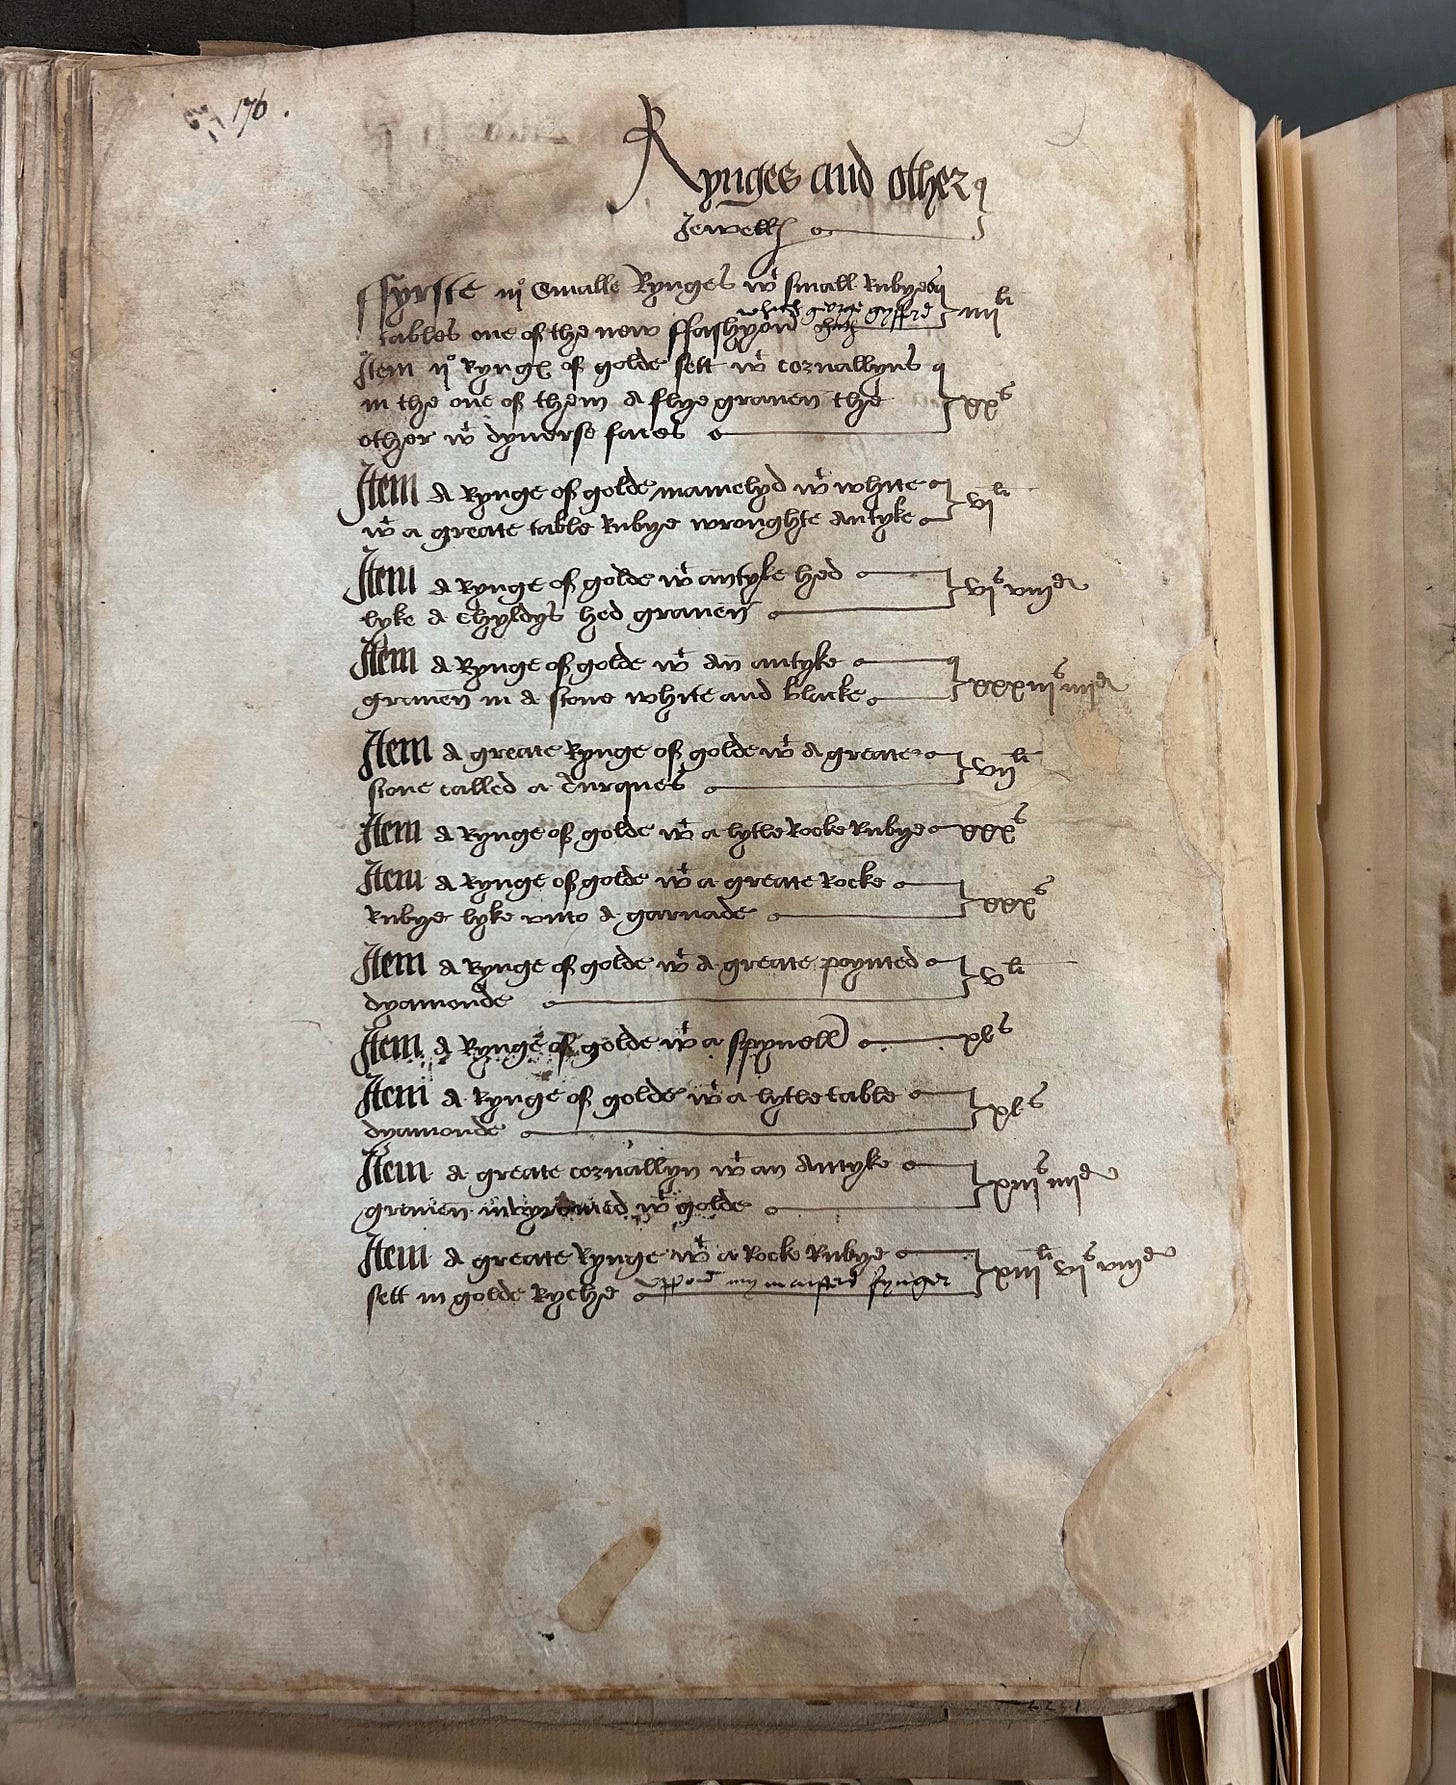 176.
Rynges and other
Jewell
ffyrste iij Smalle Rynges wt small Rubyes
which george gyfford hath
tables one of the new ffashyon iiij li
Item ij Rynges of golde sett wt cornallyns
in the one of them a flye graven the xx s
other wt dyverse faces
Item A Rynge of golde inamelyd wt white
wt a greate table Rubye wroughte Antyke vi li
Item A Rynge of golde wt antyke hed
lyke A Chyldys hed graven vi s viij d
Item A Rynge of golde wt An antyke
graven in A stone white and blacke xxxiij s iiij d
Item A greate Rynge of golde wt A greate
stone called a Turques vij li
Item A Rynge of golde wt a lytle Rocke Rubye xxx s
Item A Rynge of golde wt a greate Rocke
Rubye lyke unto A garnade xxx s
Item A Rynge of golde wt A greate poynted
dyamonde v li
Item A Rynge of golde wt a spynell xl s
Item A Rynge of golde wt a lytle table
dyamonde xl s
Item A greate cornallyn wt an Antyke
graven wt golde xiij s iiij d
Item A greate Rynge wt a Rocke Rubye
sett in golde Ryche uppon my masters fynger xiij li vi s viij d